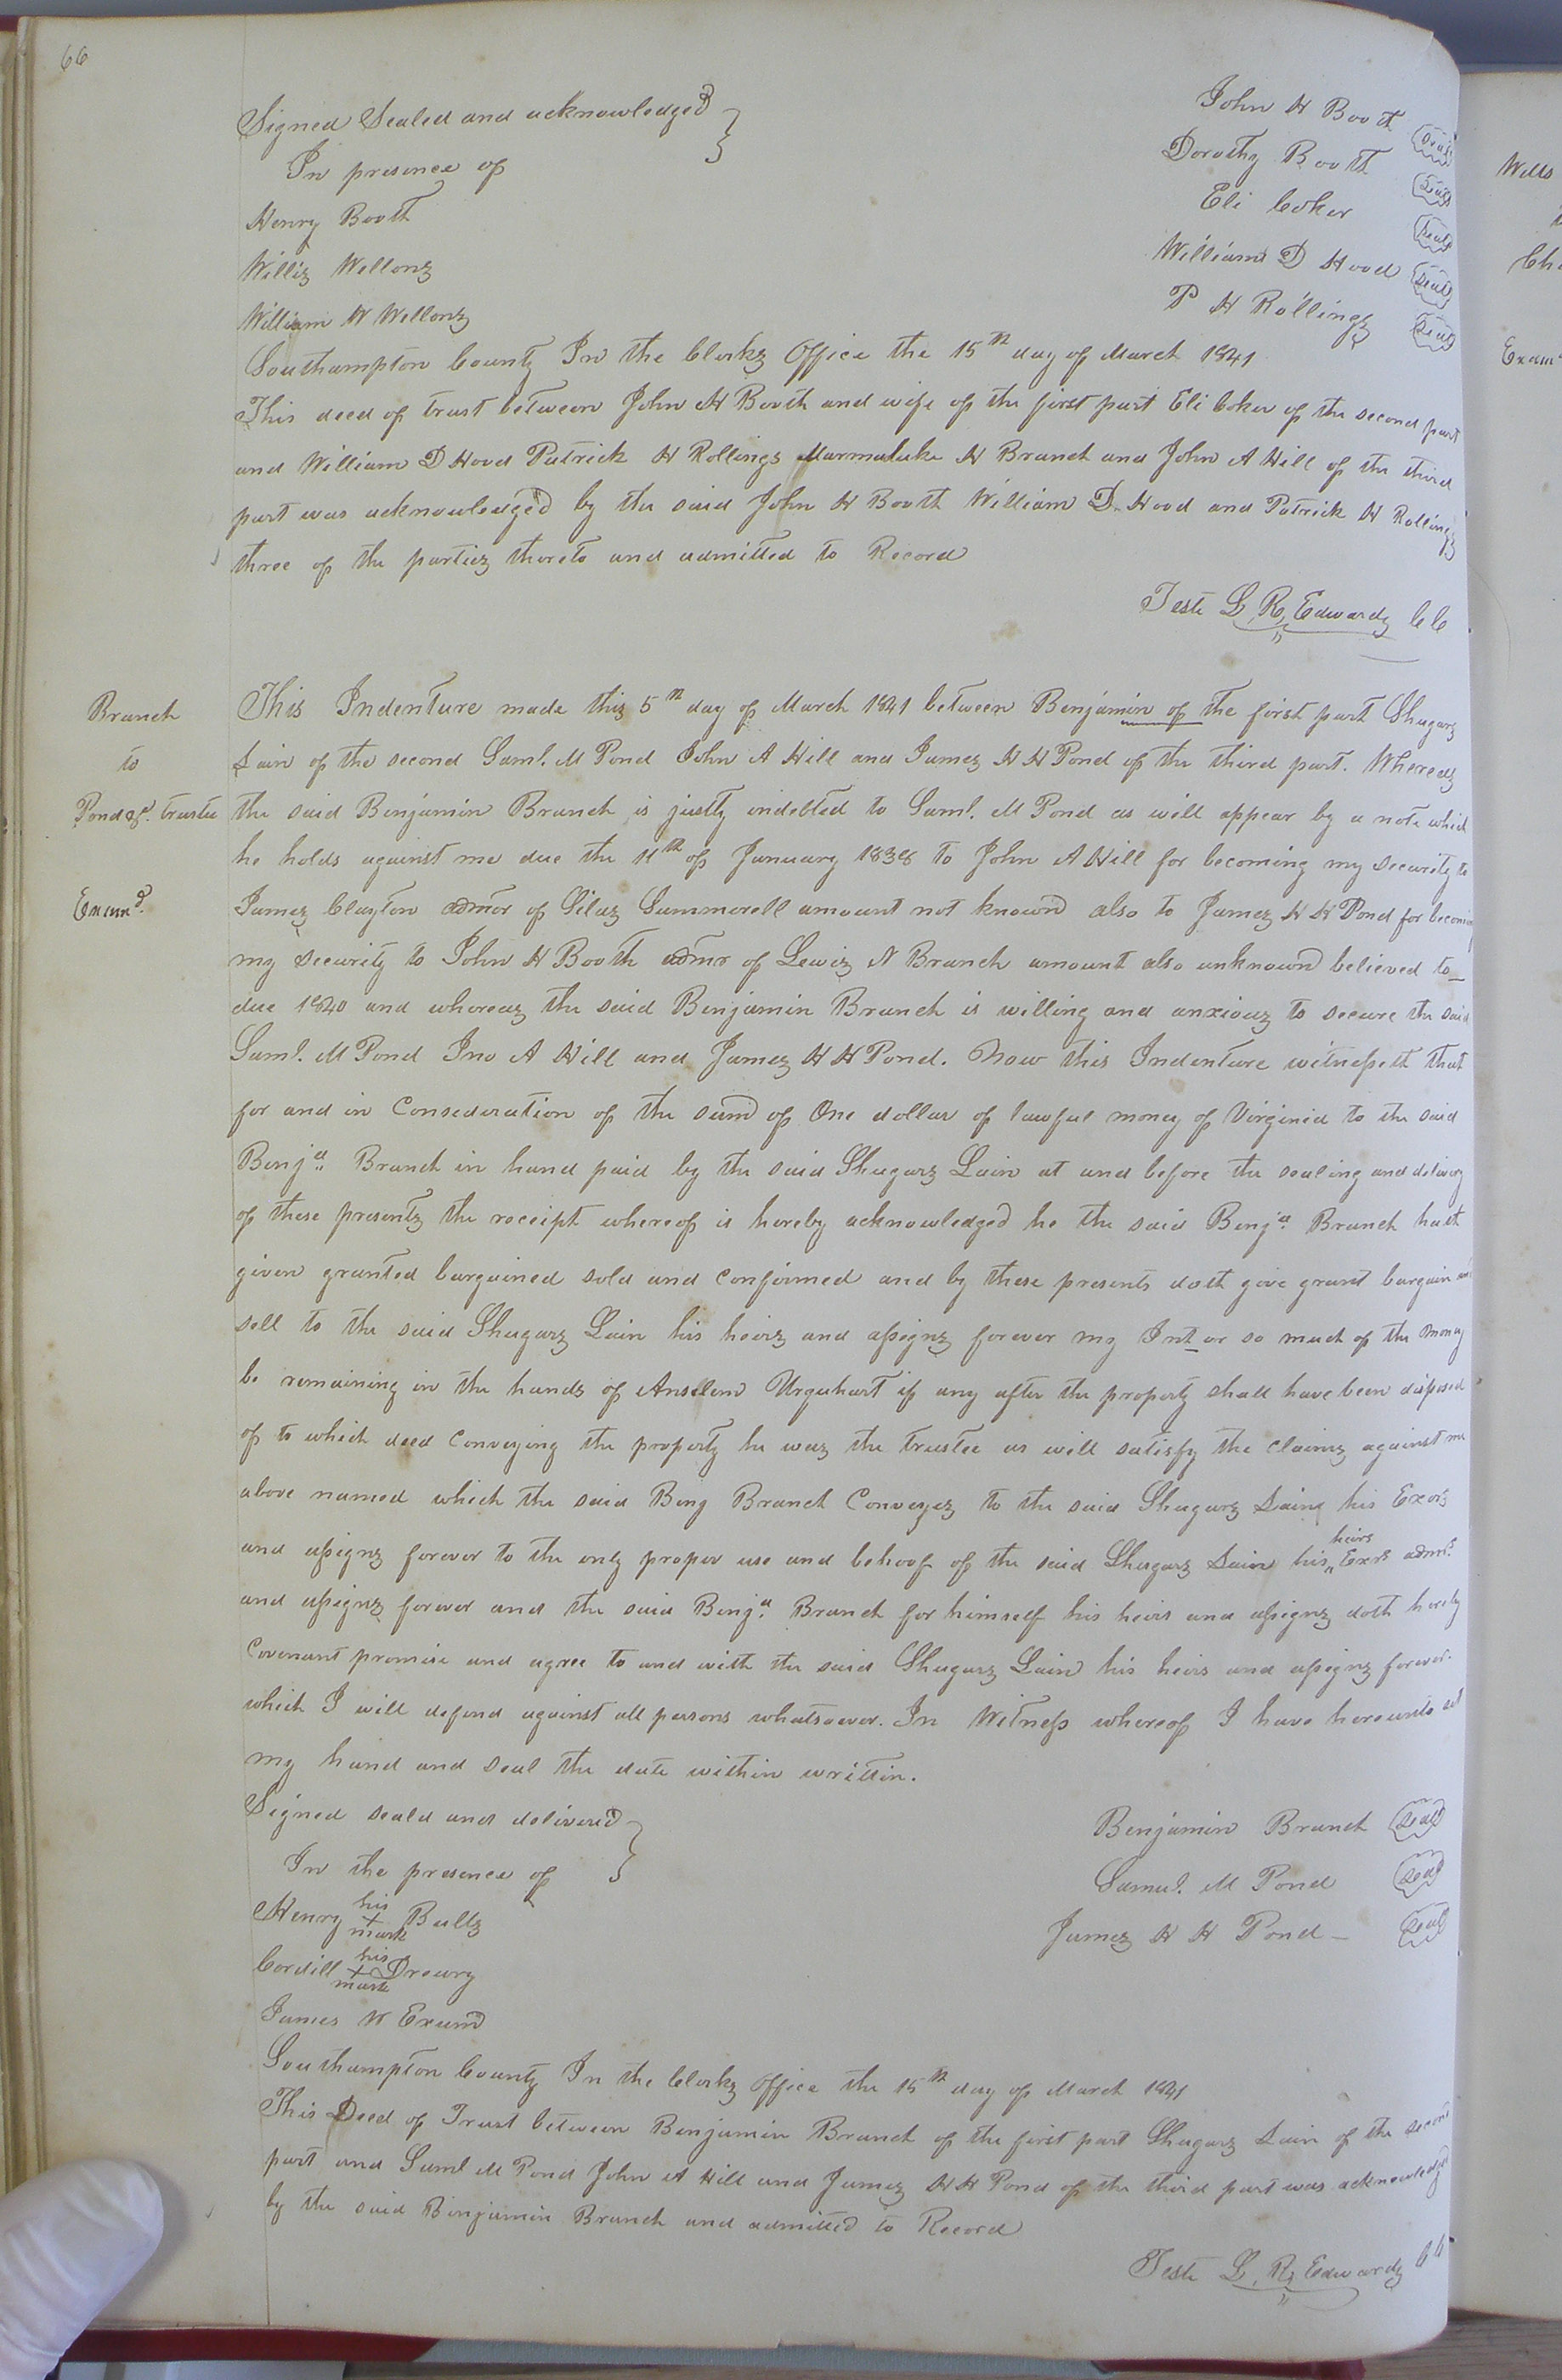 66
Signed Sealed and acknowledged
In presence of
Henry Booth
Willis Wellons
William W Wellons
John H Booth Seal
Dorothy Booth Seal
Eli Coker Seal
William D Hood Seal
P H Rollings Seal
Southampton County In the Clerks Office the 15th day of March 1841
This deed of trust between John H Booth and wife of the first part Eli Coker of the second part
and William D Hood Patrick H Rollings Marmaluke H Branch and John A Hill of the third
part was acknowledged by the said John H Booth William D. Hood and Patrick H Rollings
three of the parties thereto and admitted to Record
Teste L R Edwards CC
Branch
to
Pond &c. trustee
Examd.
This Indenture made this 5th day of March 1841 between Benjamin of the first part Shugars
Lain of the second Saml. M Pond John A Hill and James H H Pond of the third part. Whereas
the said Benjamin Branch is justly indebted to Saml. M Pond as will appear by a note which
he holds against me due the 11th of January 1838 to John A Hill for becoming my security to
James Clayton admor of Silas Summerell amount not known also to James H H Pond for becoming
my security to John H Booth admr of Lewis N Branch amount also unknown believed to
due 1840 and whereas the said Benjamin Branch is willing and anxious to secure the said
Saml. M Pond Jno A Hill and James H H Pond. Now this Indenture witnesseth that
for and in Consederation of the sum of One dollar of lawful money of Virginia to the said
Benja. Branch in hand paid by the said Shugars Lain at and before the sealing and delivery
of these presents the receipt whereof is hereby acknowledged he the said Benja. Branch hath
given granted bargained sold and confirmed and by these presents doth give grant bargain and
sell to the said Shugars Lain his heirs and assigns forever my Int or so much of the money
be remaining in the hands of Anselem Urquhart if any after the property shall have been disposed
of to which deed Conveying the property he was the trustee as will satisfy the claims against me
above named which the said Benj Branch Conveyes to the said Shugars Lain his Exors
and assigns forever to the only proper use and behoof of the said Shugars Lain his heirs Exrs admrs
and assigns forever and the said Benja. Branch for himself his heirs and assigns doth hereby
Covenant promise and agree to and with the said Shugars Lain his heirs and assigns forever.
which I will defend against all persons whatsoever. In Witness whereof I have hereunto set
my hand and seal the date within writtin.
Signed seald and delivered
In the presence of
Henry his + mark Bulls
Cordill his + mark Drewry
James W Exum
Benjamin Branch Seal
Samul. M Pond Seal
James H H Pond Seal
Southampton County In the Clerks Office the 15th day of March 1841
This Deed of Trust between Benjamin Branch of the first part Shugars Lain of the second
part and Saml M Pond John A Hill and James H H Pond of the third part was acknowledged
by the said Binjamin Branch and admitted to Record
Teste L. R. Edwards CC
Wells
Exam